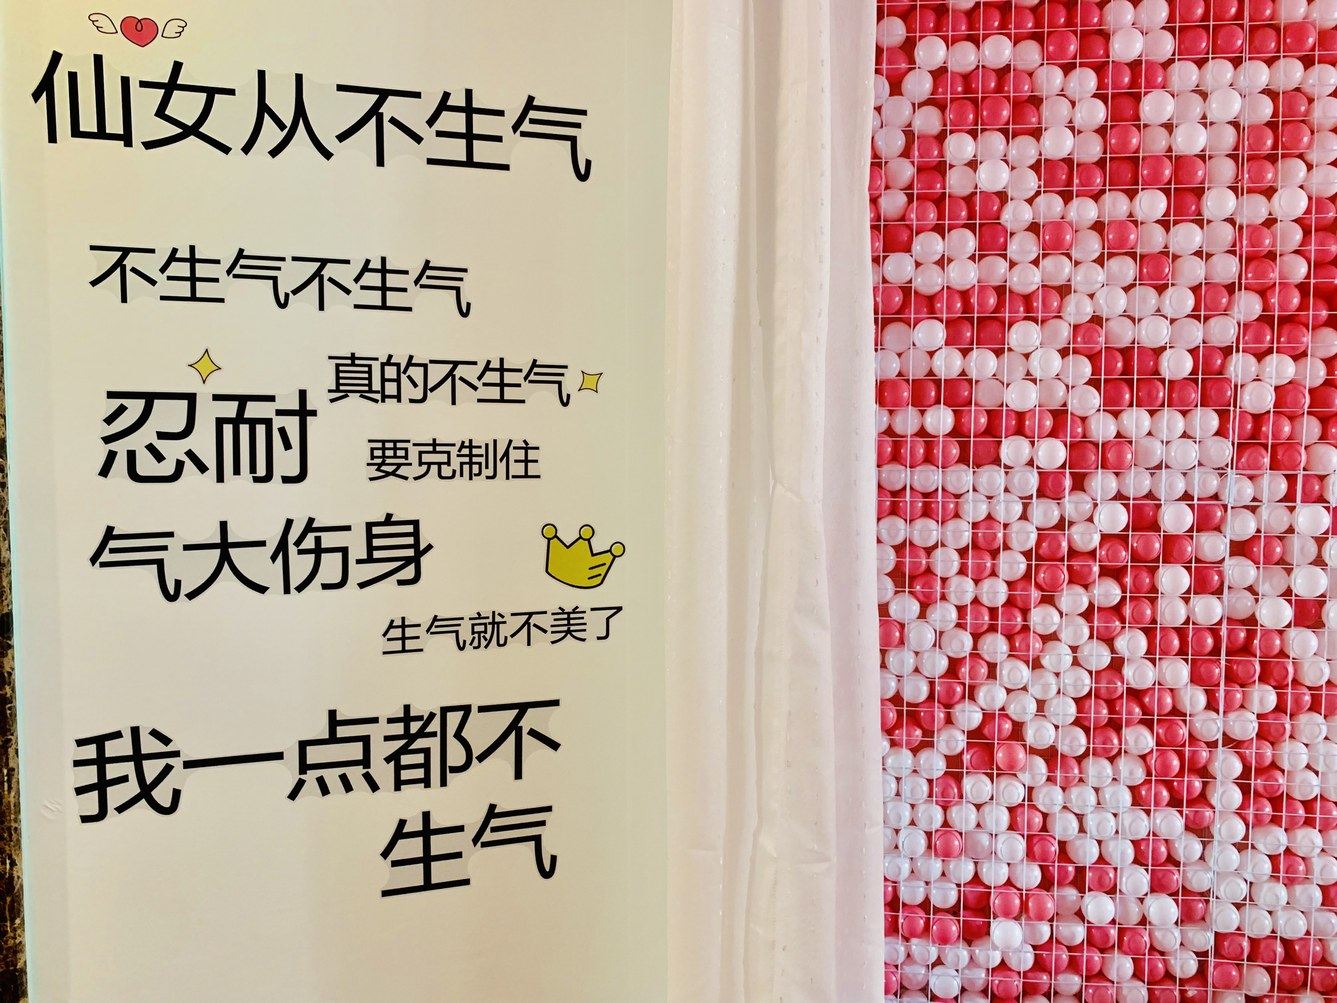 仙女从不生气
不生气不生气
真的不生气
忍耐
要克制住
气大伤身
生气就不美了
我一点都不
生气